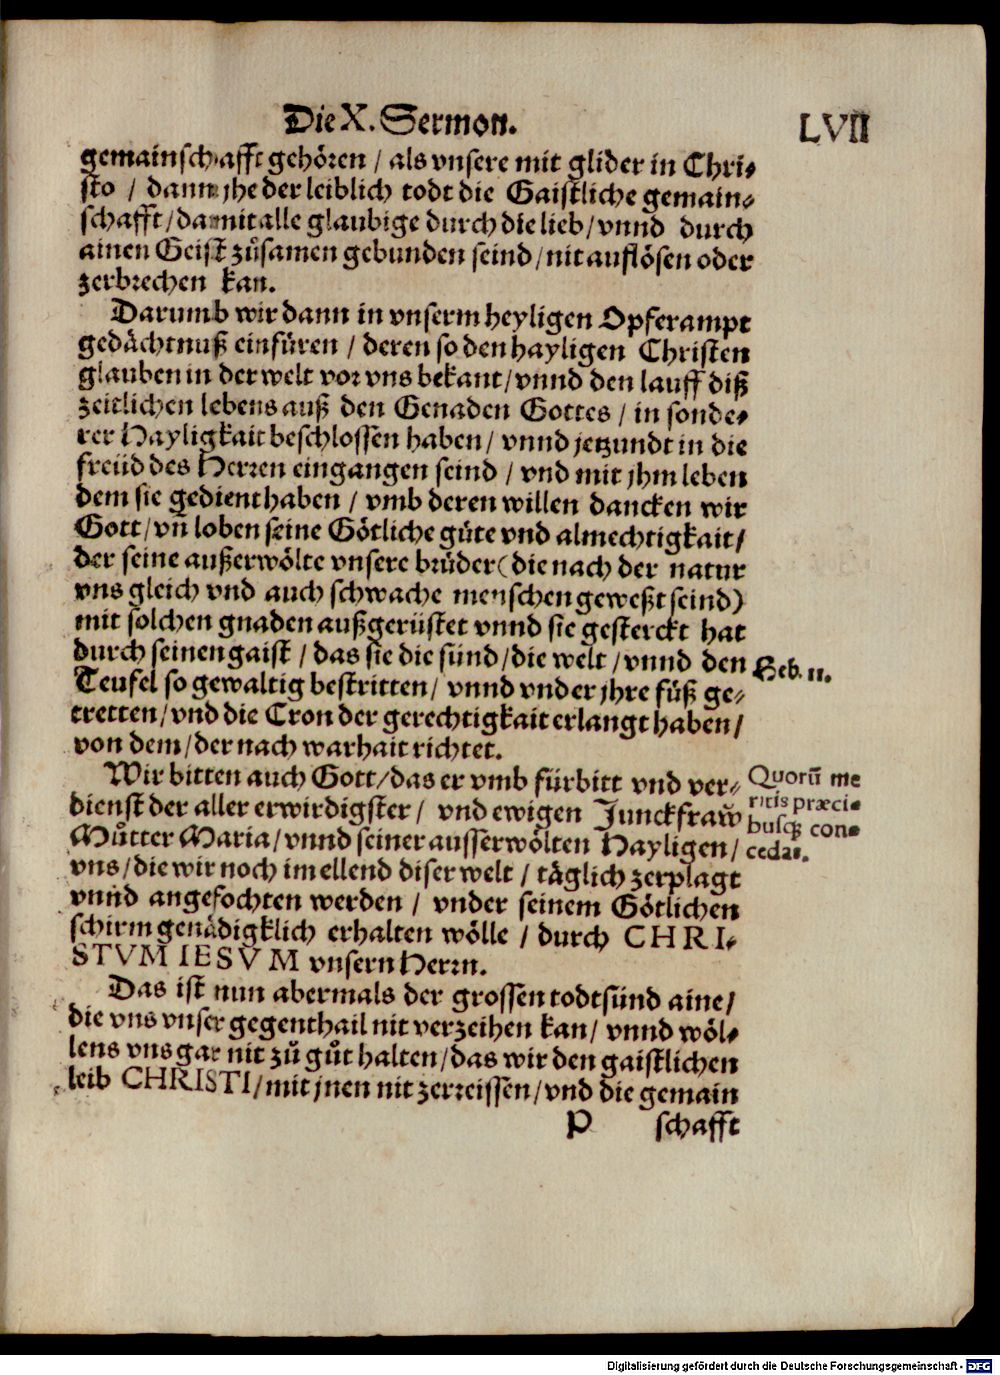 Die X. Sermon. LVII
gemainschafft gehören / als vnsere mit glider in Chri⸗
sto / dann jhe der leiblich todt die Gaistliche gemain⸗
schafft / damit alle glaubige durch die lieb / vnnd durch
ainen Geist zůsamen gebunden seind / nit auflösen oder
zerbrechen kan.
Darumb wir dann in vnserm heyligen Opferampt
gedächtnuß einfüren / deren so den hayligen Christen
glauben in der welt vor vns bekant / vnnd den lauff diß
zeitlichen lebens auß den Genaden Gottes / in sonde⸗
rer Hayligkait beschlossen haben / vnnd jetzundt in die
freüd des Herren eingangen seind / vnd mit jhm leben
dem sie gedient haben / vmb deren willen dancken wir
Gott / vñ loben seine Götliche güte vnd almechtigkait /
der seine außerwölte vnsere brüder (die nach der natur
vns gleich vnd auch schwache menschen geweßt seind)
mit solchen gnaden außgerüstet vnnd sie gesterckt hat
durch seinen gaist / das sie die sünd / die welt / vnnd den
Teufel so gewaltig bestritten / vnnd vnder jhre füß ge⸗
tretten / vnd die Cron der gerechtigkait erlangt haben /
von dem / der nach warhait richtet.
Heb. 11.
Wir bitten auch Gott / das er vmb fürbitt vnd ver⸗
dienst der aller erwirdigster / vnd ewigen Junckfraw̃
Můtter Maria / vnnd seiner ausserwölten Hayligen /
vns / die wir noch im ellend diser welt / täglich zerplagt
vnnd angefochten werden / vnder seinem Götlichen
schirm genädigklich erhalten wölle / durch CHRI⸗
STVM IESVM vnsern Herrn.
Quorū me
ritis præci⸗
busq; con⸗
cedas.
Das ist nun abermals der grossen todtsünd aine /
die vns vnser gegenthail nit verzeihen kan / vnnd wöl⸗
lens vns gar nit zů gůt halten / das wir den gaistlichen
leib CHRISTI / mit jnen nit zerreissen / vnd die gemain
P schafft
Digitalisierung gefördert durch die Deutsche Forschungsgemeinschaft - DFG